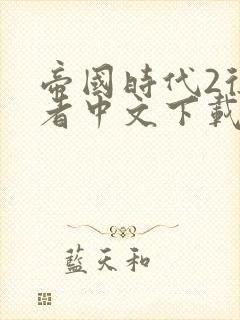 帝國時代2征
者中文下載
藍天和